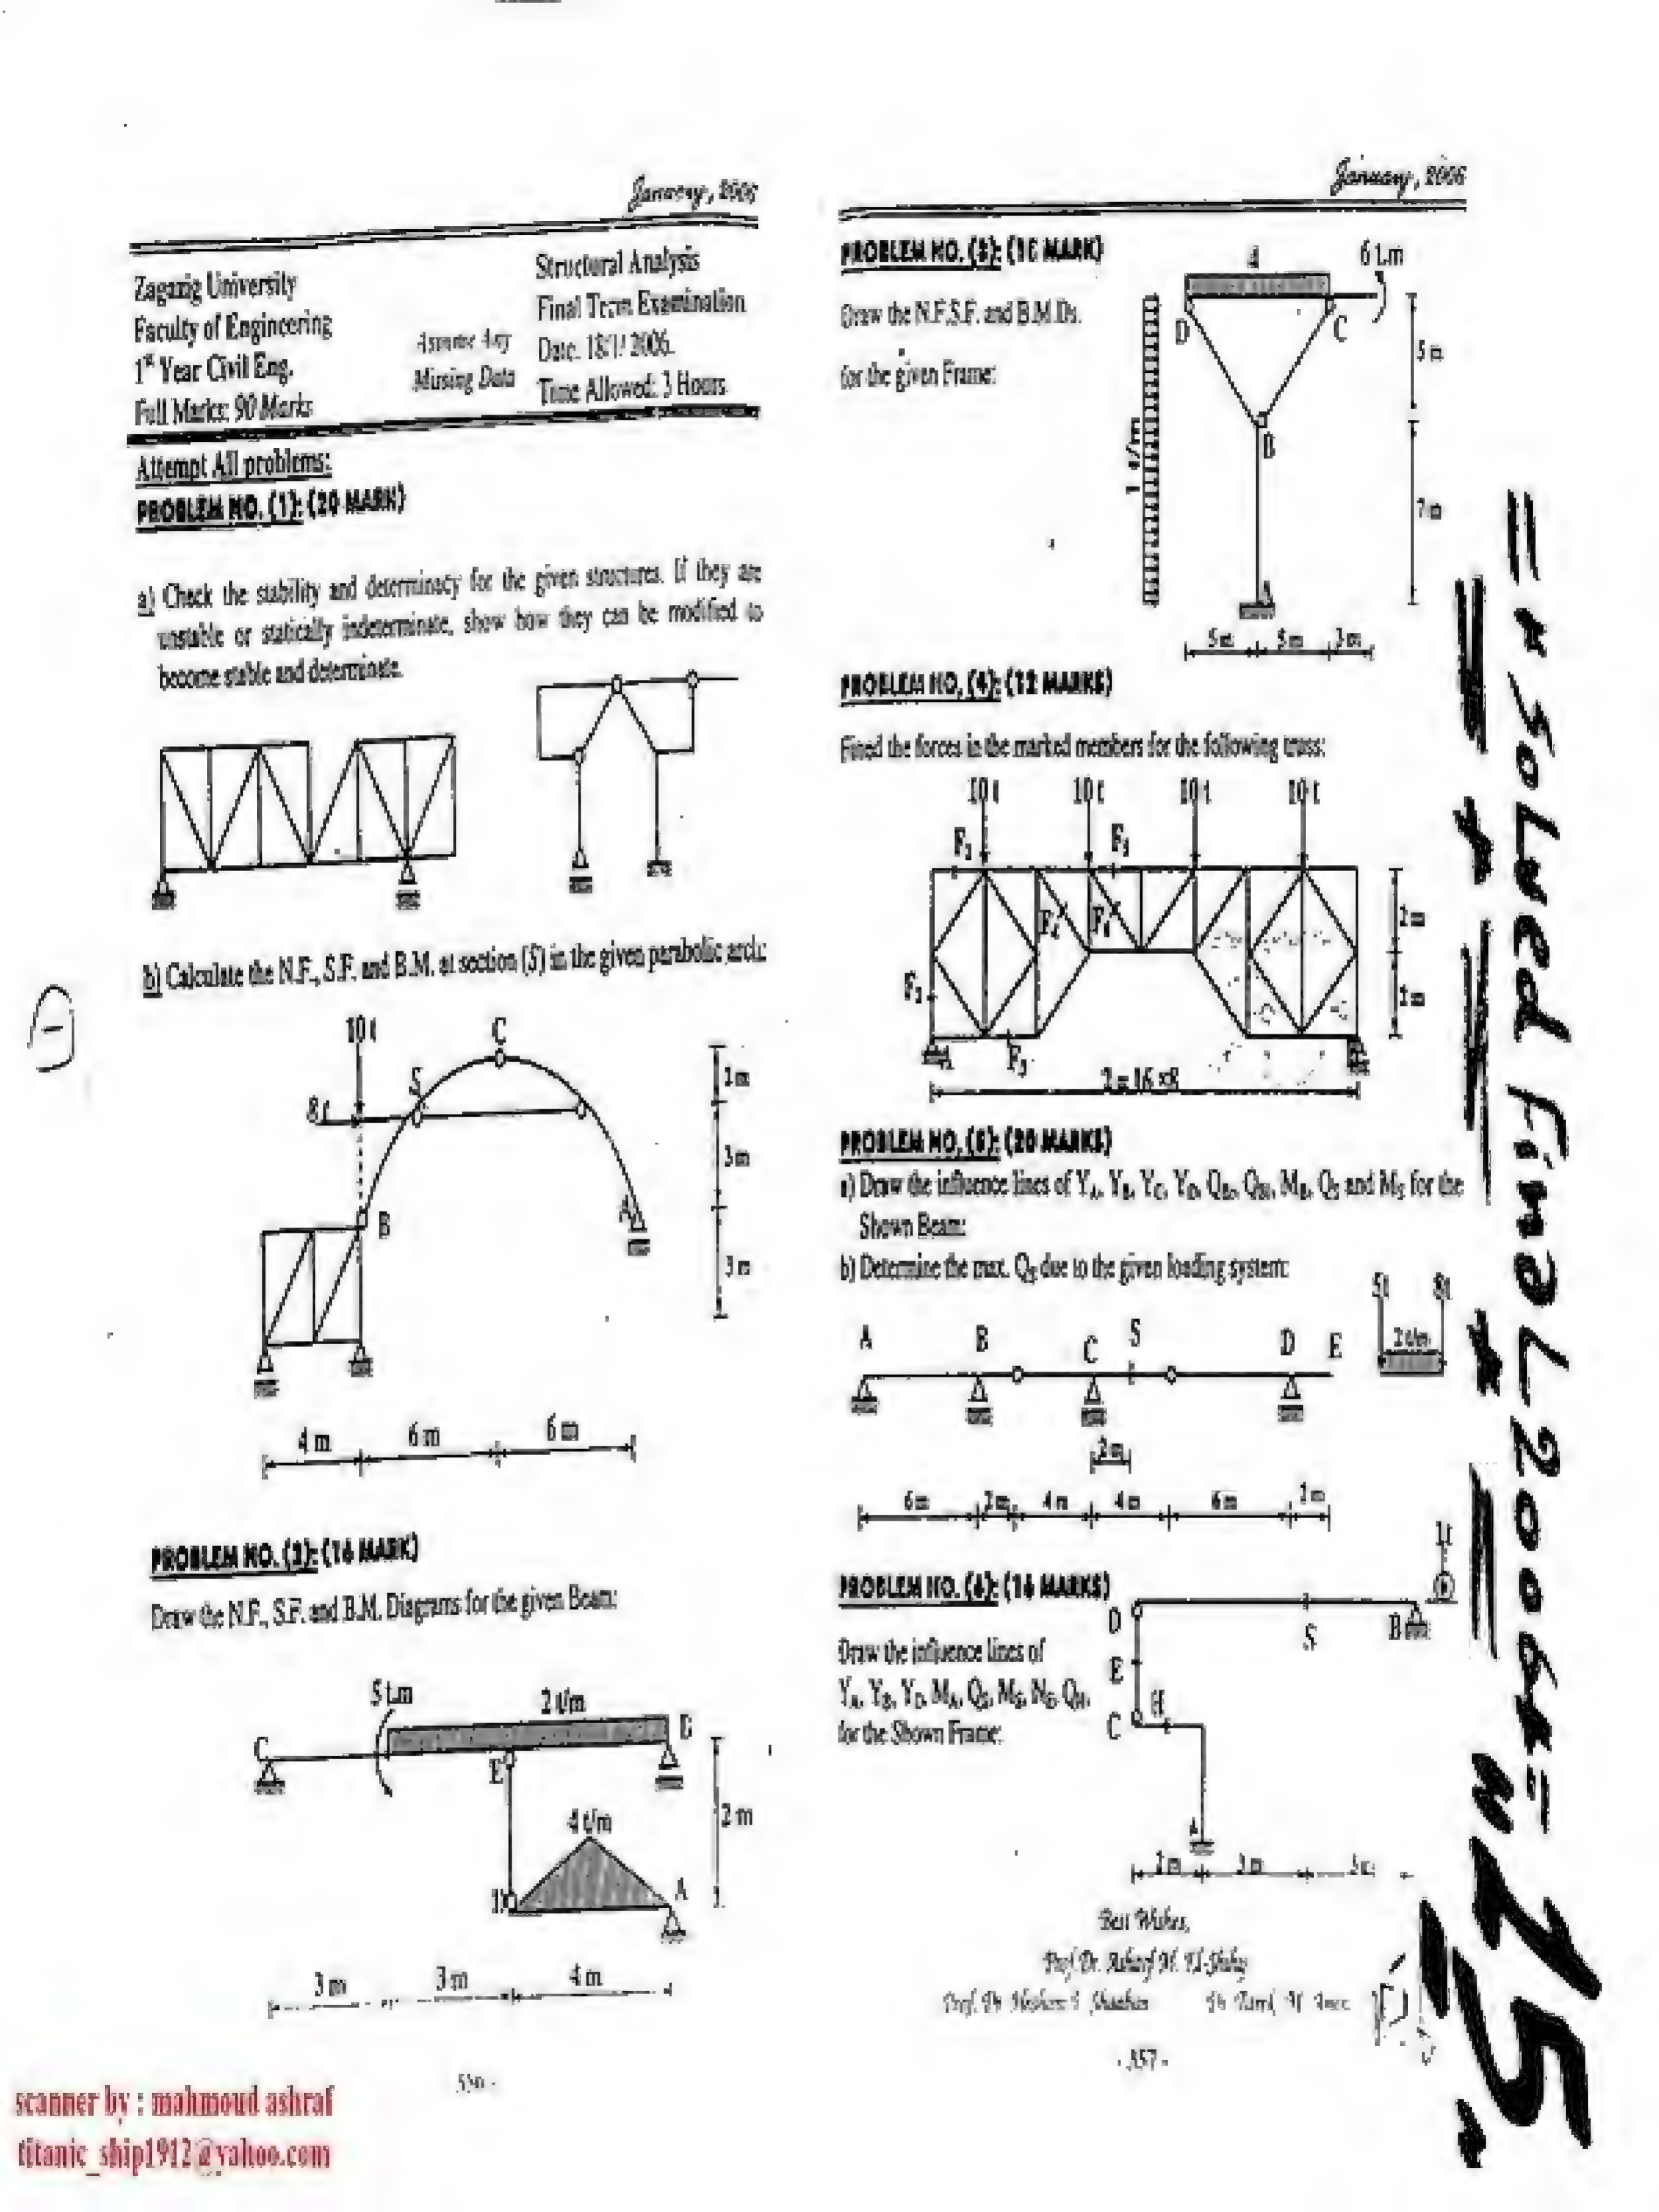 January, 2006
Zagazig University
Faculty of Engineering
1st Year Civil Eng.
Full Marks: 90 Marks
Assume Any
Missing Data
Structural Analysis
Final Term Examination
Date. 18/1/ 2006.
Time Allowed: 3 Hours
Attempt All problems:
PROBLEM NO. (1): (20 MARK)
a) Check the stability and determinacy for the given structures. If they are
unstable or statically indeterminate, show how they can be modified to
become stable and determinate.
b) Calculate the N.F., S.F. and B.M. at section (S) in the given parabolic arch:
10 t
C
S
8 t
B
A
3 m
3 m
4 m
6 m
6 m
PROBLEM NO. (2): (16 MARK)
Draw the N.F., S.F. and B.M. Diagrams for the given Beam:
5 t.m
2 t/m
C
E
2 m
4 t/m
D
A
3 m
3 m
4 m
scanner by : mahmoud ashraf
titanic_ship1912@yahoo.com
January, 2006
PROBLEM NO. (3): (16 MARK)
Draw the N.F,S.F. and B.M.Ds.
for the given Frame:
4
6 t.m
D
C
5 m
B
7 m
A
5 m
5 m
3 m
PROBLEM NO. (4): (12 MARKS)
Fined the forces in the marked members for the following truss:
10 t
10 t
10 t
10 t
2 m
2 m
A
PROBLEM NO. (5): (20 MARKS)
a) Draw the influence lines of YA, YB, YC, YD, QBr, QBl, MB, QS and MS for the
Shown Beam:
b) Determine the max. QS due to the given loading system:
5t
8t
2 t/m
A
B
C
S
D
E
2 m
6 m
2 m
4 m
4 m
6 m
2 m
PROBLEM NO. (6): (16 MARKS)
1t
Draw the influence lines of
YA, YB, YD, MA, QS, MS, NE, QH,
for the Shown Frame:
D
E
C
H
S
B
A
2 m
3 m
Best Wishes,
- 357 -